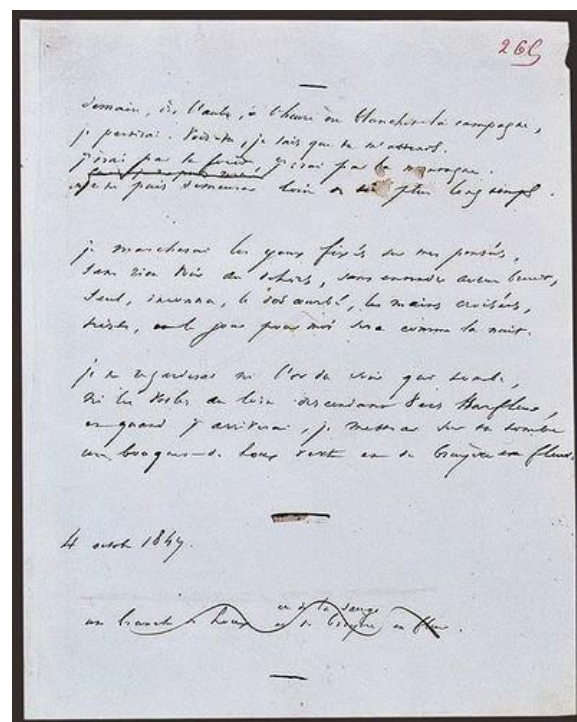 265
demain, dès l'aube, à l'heure où blanchit la campagne,
je partirai. Vois-tu, je sais que tu m'attends.
j'irai par la forêt, j'irai par la montagne.
je ne puis demeurer loin de toi plus longtemps.
je marcherai les yeux fixés sur mes pensées,
sans rien voir au dehors, sans entendre aucun bruit,
seul, inconnu, le dos courbé, les mains croisées,
triste, et le jour pour moi sera comme la nuit.
je ne regarderai ni l'or du soir qui tombe,
ni les voiles au loin descendant vers Harfleur,
et quand j'arriverai, je mettrai sur ta tombe
un bouquet de houx vert et de bruyère en fleur.
4 octob 1847.
et de la sauge
un branch de houx et de bruyère en fleur.